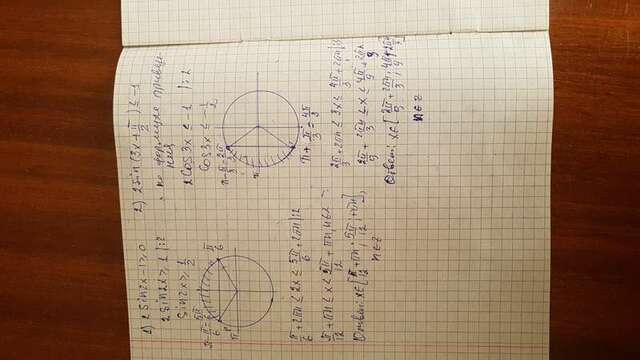 1) 2Sin2x-1≥0
2Sin2x≥1 |:2
Sin2x≥1/2
π-π/6=5π/6
π/6
π
π/6+2πn≤2x≤5π/6+2πn|:2
π/12+πn≤x≤5π/12+πn, n∈z
Ответ: x∈[π/12+πn; 5π/12+πn],
n∈z
2) 2Sin(3x+π/2)≤-1
по формуле приведе-
ния
2Cos3x≤-1 |:2
Cos3x≤-1/2
π-π/3=2π/3
π
π+π/3=4π/3
2π/3+2πn≤3x≤4π/3+2πn|:3
2π/9+2πn/3≤x≤4π/9+2πn
Ответ: x∈[2π/9+2πn/3; 4π/9+2πn
n∈z